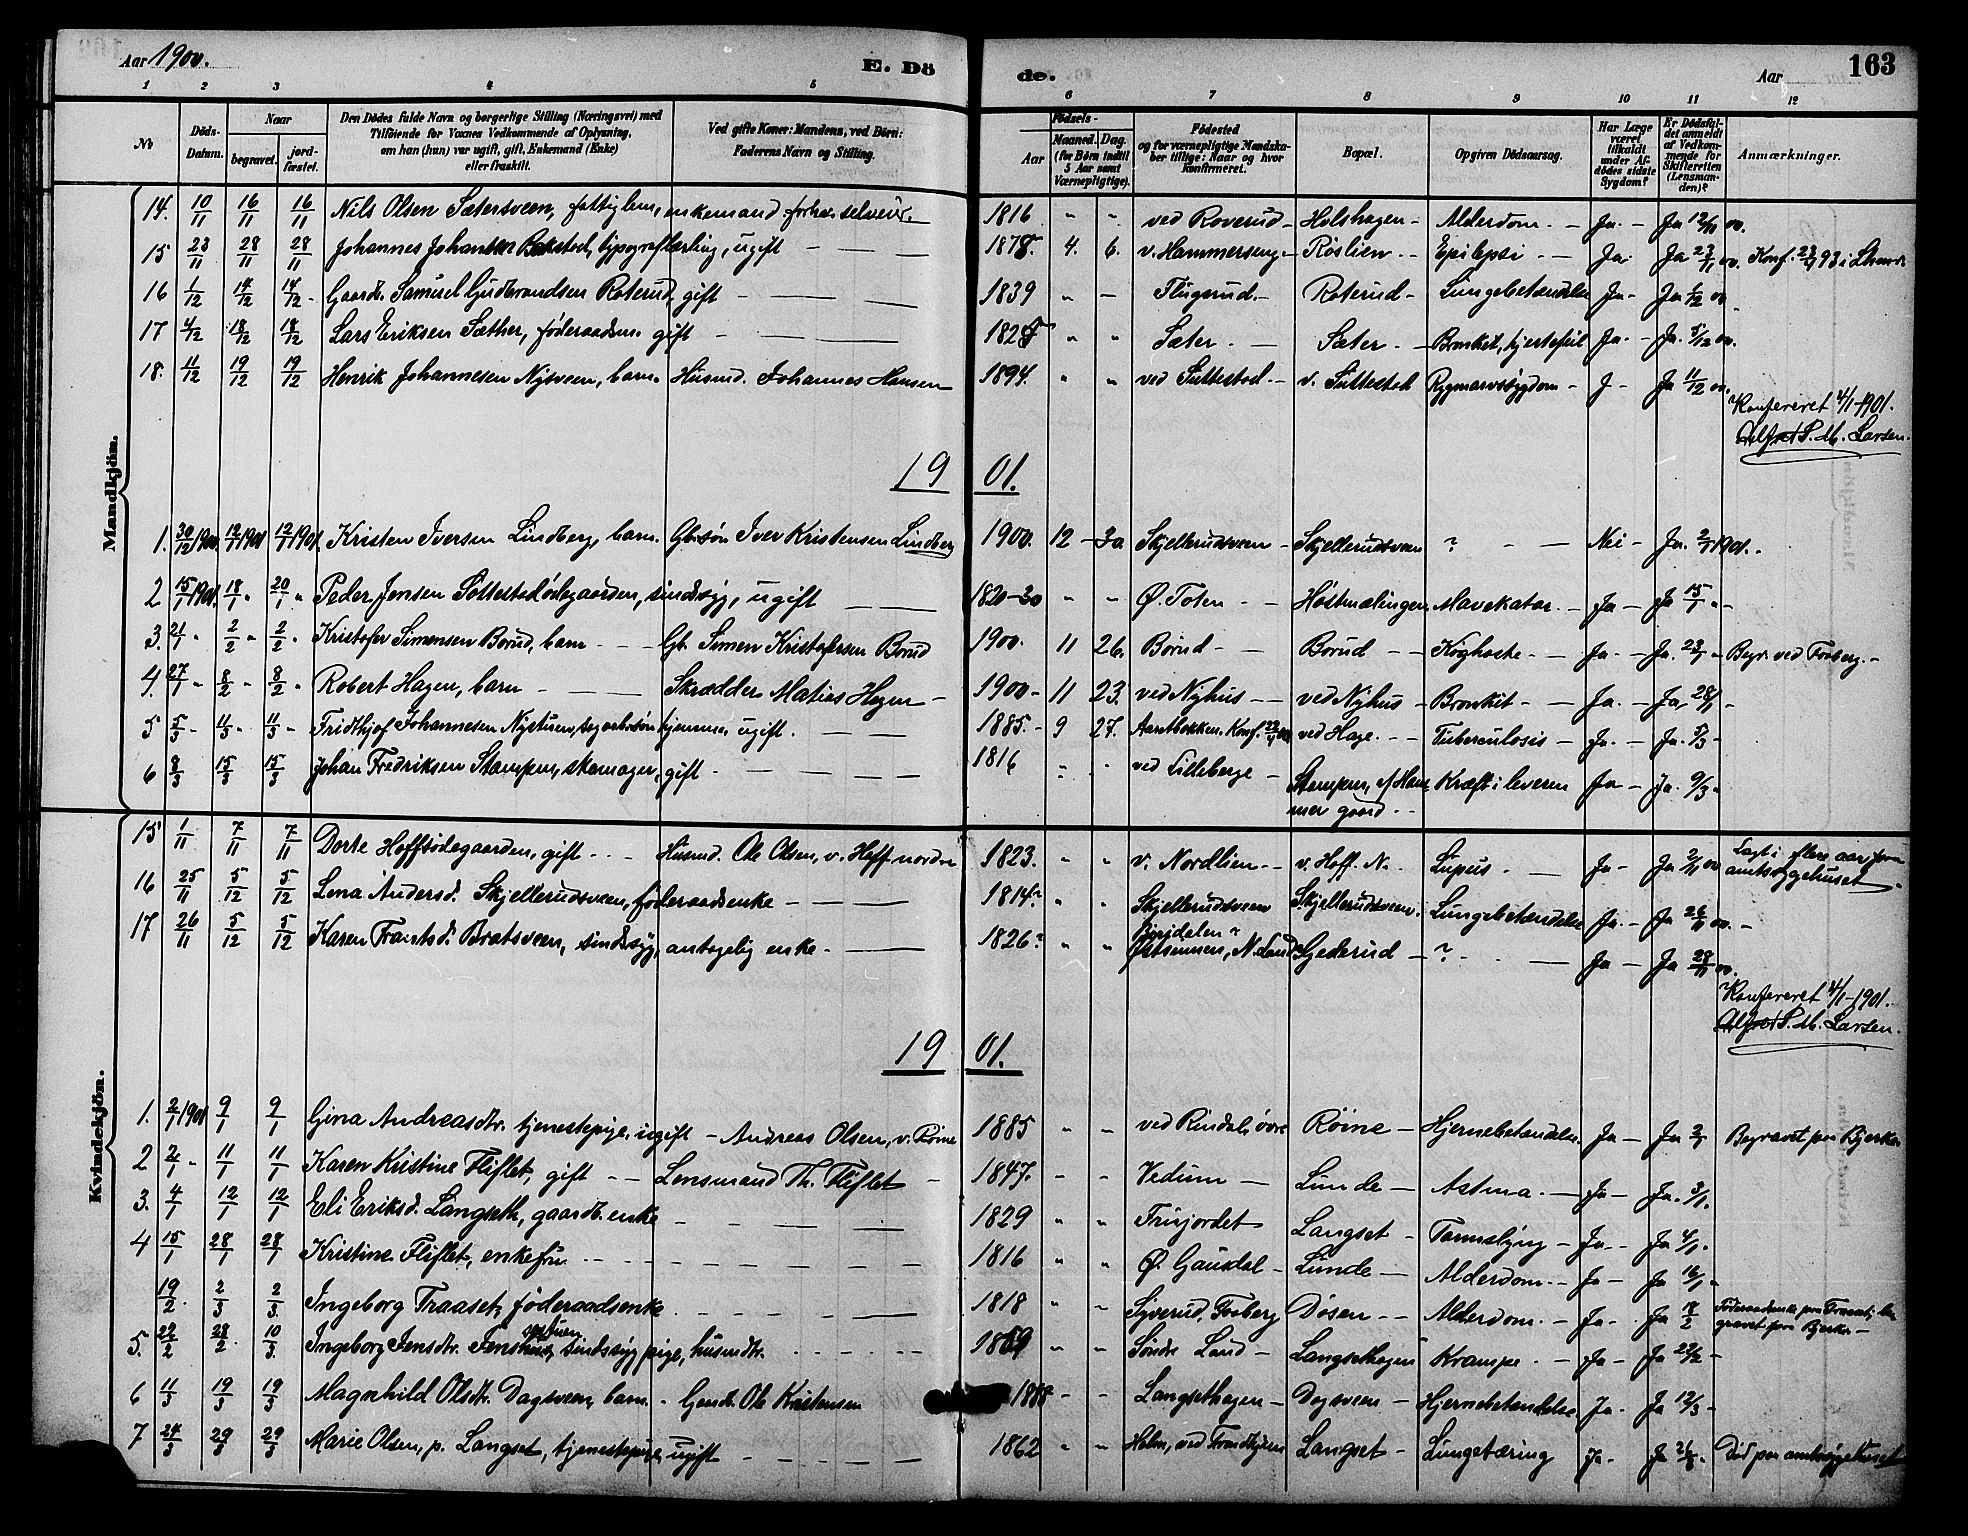 Aar 1900.
E. Dö
de.
Aar
163
1 2 3 4 5 6 7 8 9 10 11 12
No
Döds-Datum.
Naar
begravet.
jord-fæstet.
Den Dödes fulde Navn og borgerlige Stilling (Næringsvei) med
Tilföiende for Voxnes Vedkommende af Oplysning,
om han (hun) var ugift, gift, Enkemand (Enke)
eller fraskilt.
Ved gifte Koner: Mandens, ved Börn:
Faderens Navn og Stilling.
Födsels-
Aar
Maaned. Dag.
(for Börn indtil
5 Aar samt
Værnepligtige).
Födested
og for værnepligtige Mandska-
ber tillige: Naar og hvor
konfirmeret.
Bopæl.
Opgiven Dödsaarsag.
Har Læge
været
tilkaldt
under Af-
dödes sidste
Sygdom?
Er Dödsfal-
det anmeldt
af Vedkom-
mende for
Skifteretten
(Lensman-
den)?
Anmærkninger.
Mandkjön.
14. 10/11 16/11 16/11 Nils Olsen Sætersveen, fattiglem, enkemand forhen selveier. 1816 " " ved Roverud - Holshagen - Alderdom. - Ja - Ja 12/11 00.
15 23/11 28/11 28/11 Johannes Johansen Bakstad, typograflærling, ugift - 1878. 4. 6. v. Hammerseng - Röslien - Epilepsi - Ja. Ja 23/11 00. Konf. 93 i
16 1/12 14/12 14/12 Gaardb. Samuel Gudbrandsen Roterud, gift - 1839 " - Flugsrud. - Roterud - Lungebetændelse Ja - Ja 1/12 00
17 4/12 18/12 18/12 Lars Eriksen Sæther, föderaadsm. gift - 1825 " " Sæter. - Sæter. - Bronkit, hjertefeil Ja. - Ja. 5/12 00.
18. 11/12 19/12 19/12 Henrik Johannesen Nysveen, barn. Husmd. Johannes Hansen 1894. " " ved Suttestad - v. Suttestad Rygmarvssygdom - J - Ja 11/12 00.
Konfereret 4/1-1901.
Alfred S. M. Larsen.
19 01.
1. 30/12 1900. 12/1 1901 12/1 1901. Kristen Iversen Lindberg, barn. Gbr.sön Iver Kristensen Lindberg 1900. 12 - 30 Skjellerudsveen - Skjellerudsveen ? - Nei - Ja. 2/1 1901.
2 15/1 1901. 18/1 " 20/1 " Peder Jensen Sottestadödegaarden, sindssyg, ugift - 1820-30 " " Ø. Toten - Höstmælingen Mavekatar. - Ja - Ja 15/1 "
3. 21/1 " 2/2 " 2/2 " Kristofer Simensen Borud, barn - Gb. Simen Kristofersen Borud 1900. 11 26. Börud - Borud - Kighoste - Ja. - Ja. 23/1 " Begr. ved Fosberg. -
4. 27/1 " 8/2 " 8/2 " Robert Hagen, barn - Skrædder Matias Hagen - 1900 - 11 23. ved Nyhus - ved Nyhus - Bronkit - Ja - Ja, 28/1
5 5/3 " 11/3 " 11/3 " Fridthjof Johannesen Nystuen, hjemme, ugift. - 1885. - 9 27. Konf. ved Hage. - Tuberculosis - Ja. - Ja. 5/3
6 8/3 15/3 15/3 Johan Fredriksen Stampen, skomager, gift - 1816 " " ved Lilleberge - Stampen, v/ Ham-
mer gaard. - Kræft i leveren Ja - Ja. 9/3 -
Kvindekjön.
15 1/11 7/11 7/11 Dorte Hoffsödegaarden, gift - Husmd. Ole Olsen, v. Hoff nordre 1823. " " v. Nordlien - v. Hoff. N. - Lupus. - Ja - Ja 2/11 00 Lagt i flere aar paa
amtssygehuset.
16 25/11 5/12 5/12 Lena Andersd. Skjellerudsveen, föderaadsenke - 1814. " " Skjellerudsveen Skjellerudsveen. Lungebetændelse Ja. - Ja 26/11 00. -
17 26/11 5/12 5/12 Karen Frantsd. Bratsveen, sindssyg, antagelig enke - 1826? " " Biridalen ?
Østsinnen, N. Land Gjederud - ? - Ja - Ja 28/11 00.
Konfereret 4/1-1901.
Alfred S. M. Larsen.
19 01.
1. 2/1 1901 9/1 9/1 Gina Andreasdtr. tjenestepige, ugift - Andreas Olsen, v. Röine 1885 " " ved Rindal, övre Röine - Hjernebetændelse Ja - Ja 2/1 Begravet paa Bjerke
2 2/1 " 11/1 11/1 Karen Kristine Fliflet, gift - Lensmand Th. Fliflet - 1847. " " Vedum - Lunde - Astma. - Ja - Ja. 3/1.
3. 4/1 12/1 12/1 Eli Eriksd. Langseth, gaardb. enke - 1829 " " Frisjordet Langset - Tarmslyng - Ja - Ja 4/1.
4 15/1 28/1 28/1 Kristine Fliflet, enkefru - 1816 " " Ø. Gausdal - Lunde - Alderdom - Ja - Ja 16/1
19/2. 2/3 2/3 Ingeborg Traaset, föderaadsenke - 1818 " " Syverud, Fosberg Døsen - Alderdom. - Ja - Ja 18/2 Föderaadsenke paa Traaset; be-
gravet paa Bjerke -
5. 22/2 28/2. 10/3 Ingeborg Jensdtr. sindssyg pige, husmdtr. - 1869 " " Söndre Land - Langsethagen Krampe. - Ja - Ja 22/2 -
6 11/3 19/3 19/3 Magnhild Olsdtr. Dagsveen, barn. - Gaardb. Ole Kristensen 1888 - " - Langsethagen - Dagsveen - Hjernebetændelse Ja. - Ja 12/3 -
7 24/3 29/3 29/3 Marie Olsen, p. Langset, tjenestepige, ugift - 1862 " " Holm, ved Trondhjem Langset - Lungetæring Ja - Ja 26/3. Död paa amtssygehuset